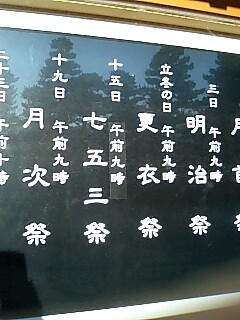 月首祭
三日
明治祭
午前九時
立冬の日
更衣祭
午前九時
十五日
七五三祭
午前九時
十九日
月次祭
午前九時
二十三日
午前十時